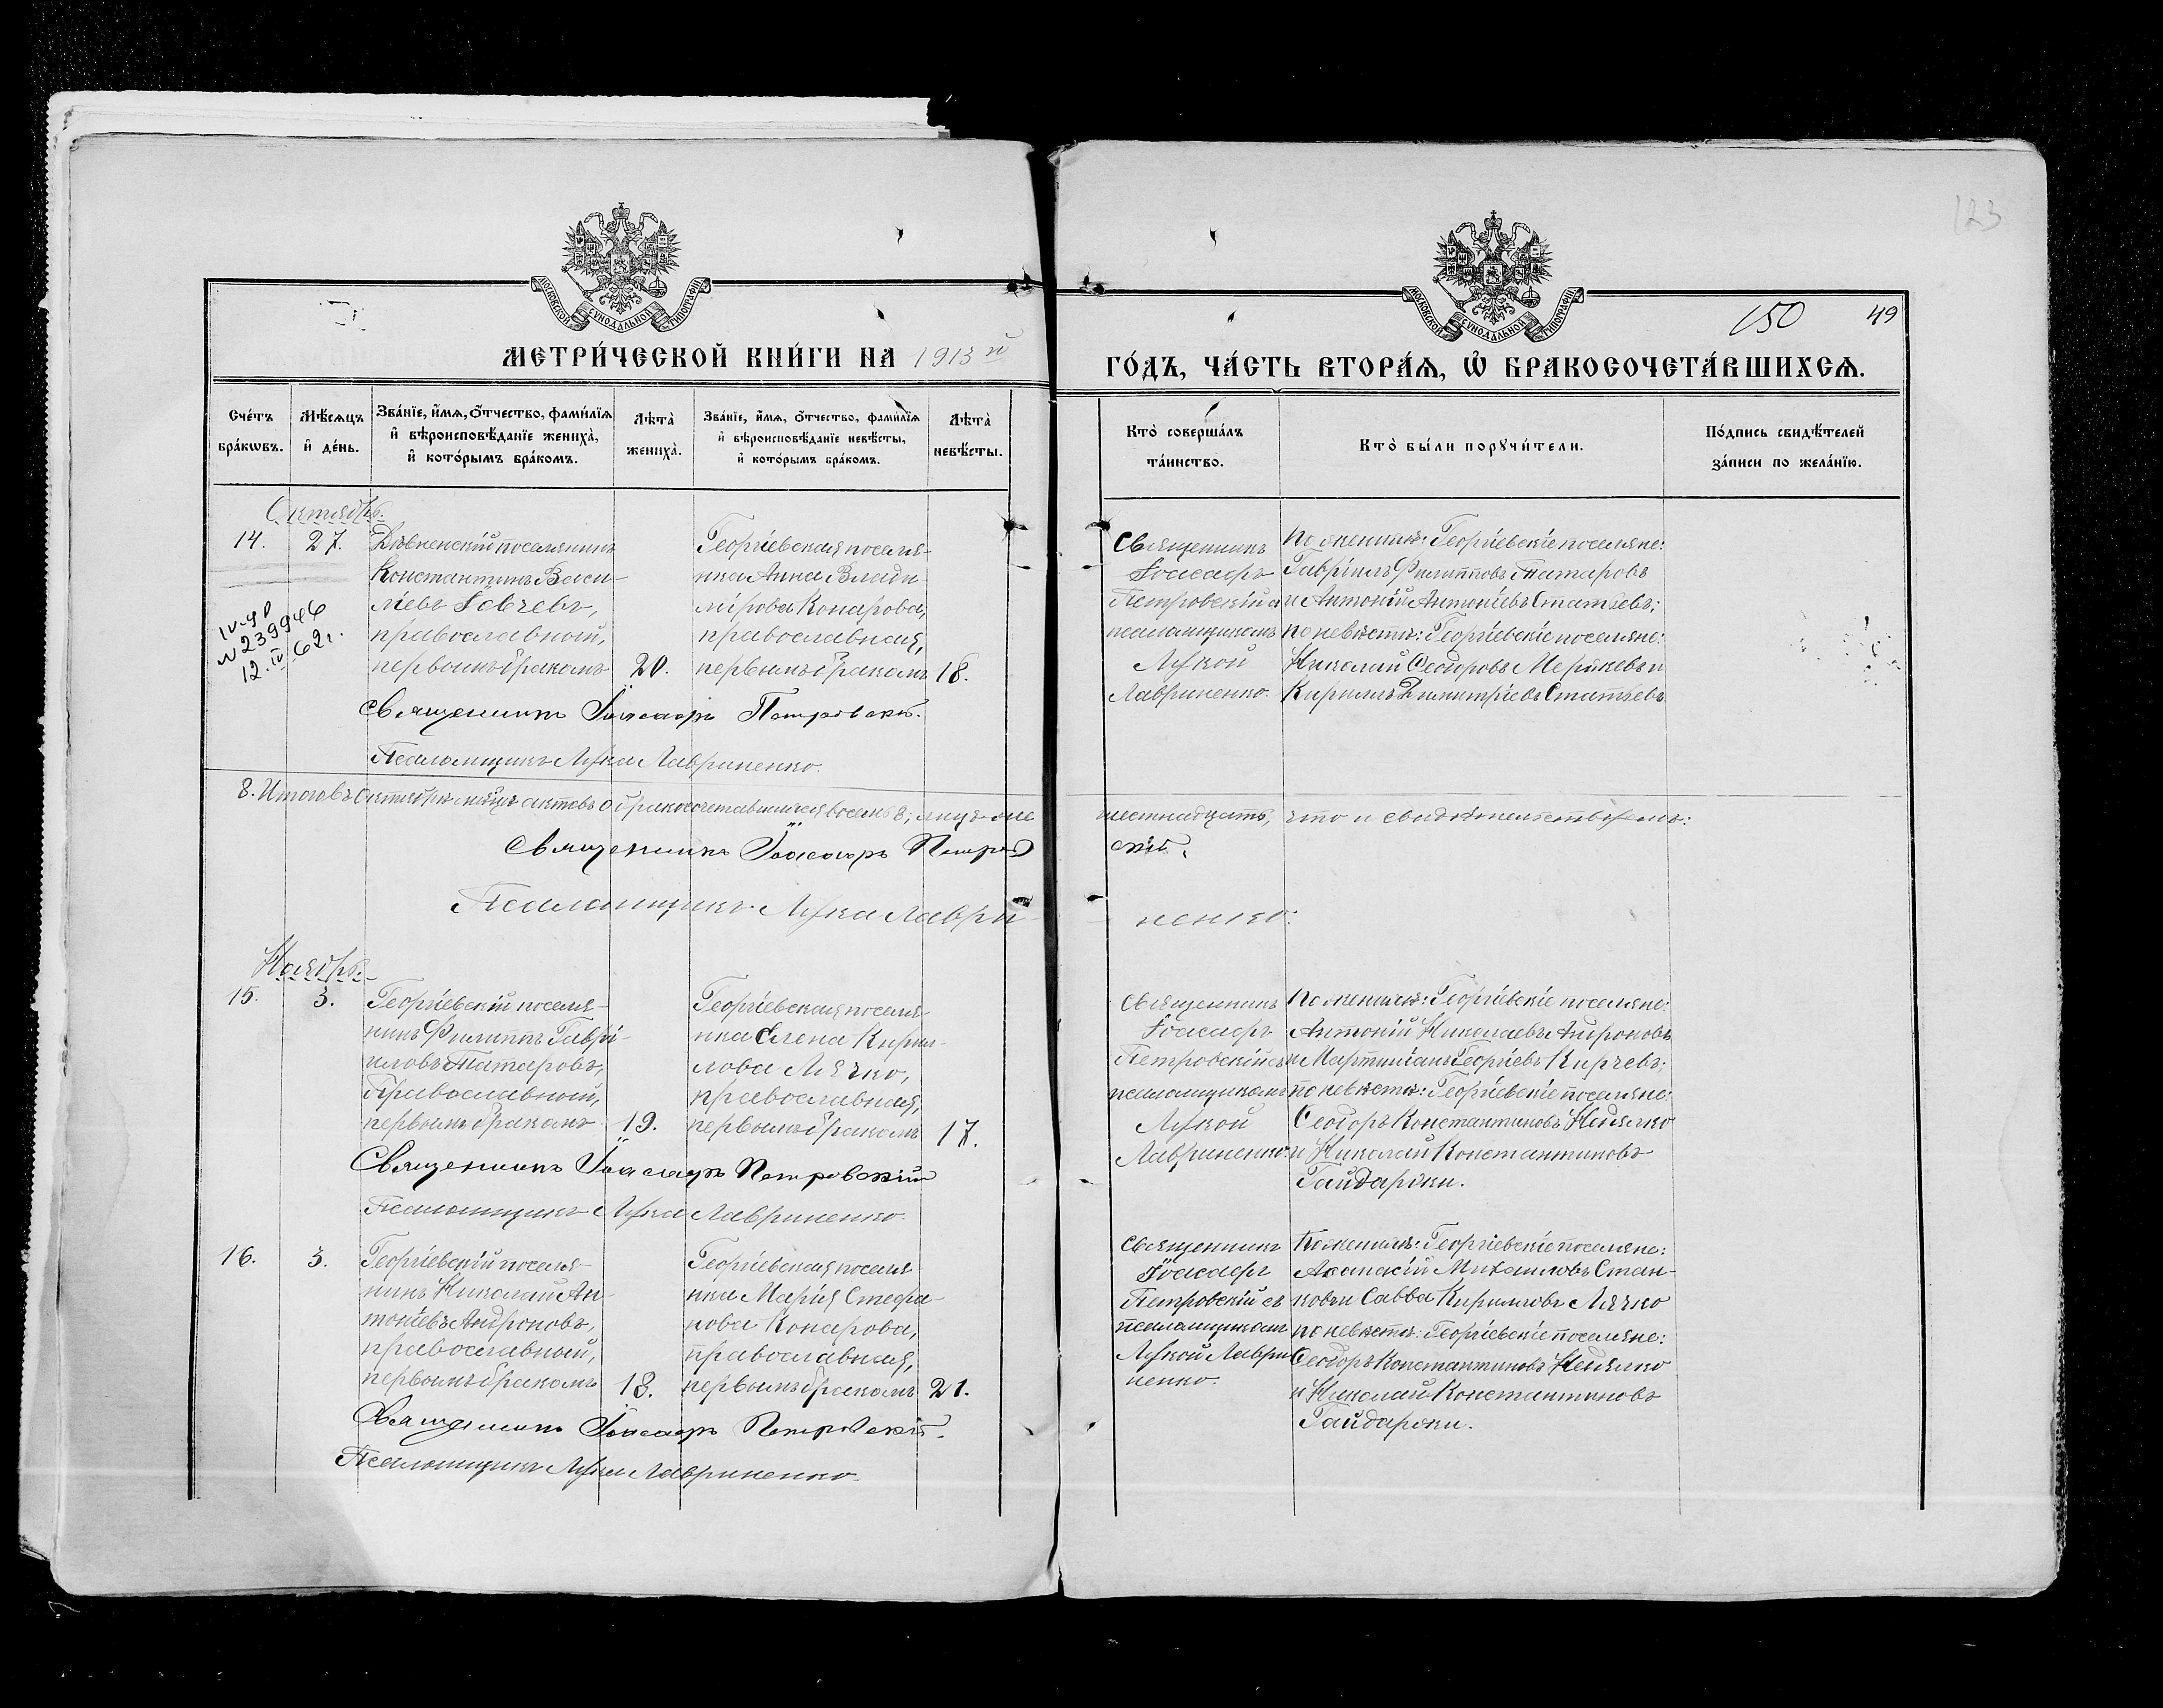 123
МОСКОВСКОЙ СѴНОДАЛЬНОЙ ТИПОГРАФІИ
МОСКОВСКОЙ СѴНОДАЛЬНОЙ ТИПОГРАФІИ
150 49
МЕТРИ́ЧЕСКОЙ КНИ́ГИ НА 1913 й
ГО́ДЪ, ЧА́СТЬ ВТОРА́Ѧ, Ѿ БРАКОСОЧЕТА́ВШИХСѦ.
Сче́тъ бра́кѡвъ.
Мѣ́сѧцъ и҆ де́нь.
Зва́нїе, и҆́мѧ, ѻ҆́тчество, фами́лїѧ и҆ вѣроисповѣ́данїе жениха̀, и҆ кото́рымъ бра́комъ.
Лѣта̀ жениха̀.
Зва́нїе, и҆́мѧ, ѻ҆́тчество, фами́лїѧ и҆ вѣроисповѣ́данїе невѣ́сты, и҆ кото́рымъ бра́комъ.
Лѣта̀ невѣ́сты.
Кто̀ соверша́лъ та́инство.
Кто̀ бы́ли порꙋчи́тели.
По́дпись свидѣ́телей за́писи по жела́нїю.
Октябрь.
14.
27.
поселянинъ
Константинъ Васи-
ліевъ
православный,
первымъ бракомъ
20.
Георгіевская поселя-
нка Анна Влади-
мірова Конарова,
православная,
первымъ бракомъ
18.
Священникъ
Іоасафъ
Петровскій
псаломщикомъ
Лукой
Лавриненко.
По женихѣ: Георгіевскіе поселяне:
Гавріилъ Филипповъ Татаровъ
и Антоній Антоніевъ Статьевъ;
по невѣстѣ: Георгіевскіе поселяне:
Николай Ѳеодоровъ и
Кириллъ Димитріевъ Статьевъ
№ 239946
12.IV.62г.
Священникъ Іоасафъ Петровскій.
Псаломщикъ Лука Лавриненко.
8. Итого въ Октябрѣ мѣсяцѣ актовъ о бракосочетавшихся восемь 8; лицъ
шестнадцать, что и свидѣтельствуемъ:
Священникъ Іоасафъ Петров
скій.
Псаломщикъ Лука Лаври-
ненко.
Ноябрь.
15.
3.
Георгіевскій поселя-
нинъ Филиппъ Гаврі-
иловъ Татаровъ,
Православный,
первымъ бракомъ
19.
Георгіевская поселя-
нка Елена Кирил-
лова Лячко,
православная,
первымъ бракомъ
17.
Священникъ
Іоасафъ
Петровскій съ
псаломщикомъ
Лукой
Лавриненко.
По женихѣ: Георгіевскіе поселяне:
Антоній Николаевъ Андроновъ
и Мартиніанъ Георгіевъ Кирчевъ;
по невѣстѣ: Георгіевскіе поселяне:
Ѳеодоръ Константиновъ Недялко
и Николай Константиновъ
Гайдаржи.
Священникъ Іоасафъ Петровскій
Псаломщикъ Лука Лавриненко.
16.
3.
Георгіевскій поселя-
нинъ Николай Ан-
тоніевъ Андроновъ,
православный,
первымъ бракомъ
18.
Георгіевская поселя-
нка Марія Стефа-
нова Конарова,
православная,
первымъ бракомъ
21.
Священникъ
Іоасафъ
Петровскій съ
псаломщикомъ
Лукой Лаври
ненко.
По женихѣ: Георгіевскіе поселяне:
Аѳанасій Михаиловъ Стан-
ковъ и Савва Кирилловъ Лячко
по невѣстѣ: Георгіевскіе поселяне:
Ѳеодоръ Константиновъ Недялко
и Николай Константиновъ
Гайдаржи.
Священникъ Іоасафъ Петровскій.
Псаломщикъ Лука Лавриненко.